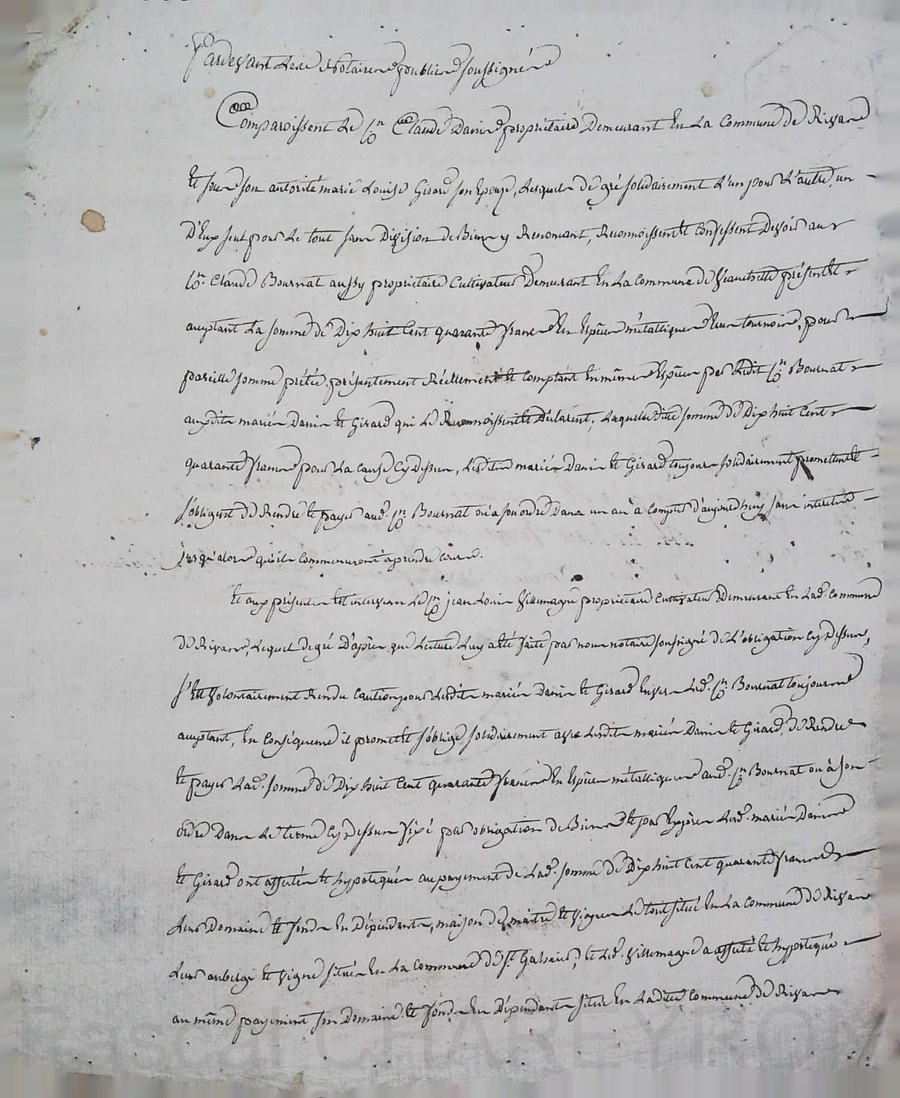 Pardevant Le Notaire public soussigné
Comparoissent Le Cn Claude Danis propriétaire Demeurant En La Commune De Rivas
Et sous son autorité marie Louise Girard son Epouse, Lesquels de gré solidairement L'un pour L'autre, un
D'Eux seul pour Le tout sans Division de Biens y Renoncant, Reconnoissent Et Confessent Devoir au
Cn Claude Bournat aussy propriétaire Cultivateur Demeurant En La Commune de Veauchette présent Et
acceptant La somme de Dix huit Cent quarante francs En Espèces métalliques Ecus tournois, pour
pareille somme prêtée, présentement Réellement Et Comptant En mêmes Espèces par Ledit Cn Bournat
auxdits mariés Danis Et Girard qui Le Reconnoissent Et Déclarent, Laquelle ditte somme de Dix huit Cent
quarante francs pour La Cause Cy Dessus, Lesdits mariés Danis Et Girard toujours solidairement promettent Et
s'obligent de Rendre Et payer aud. Cn Bournat ou à son ordre Dans un an à Compter d'aujourd'huy sans interets
jusqu'alors qu'ils Commenceront à prendre Cours.
Et aux présentes Est intervenu Le Cn jean Louis Villemagne propriétaire Cultivateur Demeurant En Lad. Commune
de Rivas, Lequel de gré D'après que Lecture Luy a Eté faite par nous notaire soussigné de L'obligation Cy Dessus,
s'Est Volontairement Rendu Caution pour Lesdits mariés Danis Et Girard Envers Led. Cn Bournat toujours
acceptant, En Conséquence il promet Et s'oblige solidairement avec Lesdits mariés Danis Et Girard, de Rendre
Et payer Lad. somme de Dix huit Cent quarante francs En Espèces métalliques aud. Cn Bournat ou à son
ordre Dans Le terme Cy Dessus fixé par obligation de Biens Et par Exprès Lesd. mariés Danis
Et Girard ont affectés Et hypotequés au payement de Lad. somme de Dix huit Cent quarante francs
Leur Domaine Et fonds En Dépendants, maison de maitre Et Vignes Le tout situé En La Commune de Rivas
Leur auberge Et Vigne située En La Commune de St. Galmier, Et Led. Villemagne a affecté Et hypotequé
au même payement son Domaine Et fonds En Dépendants situé En Laditte Commune de Rivas